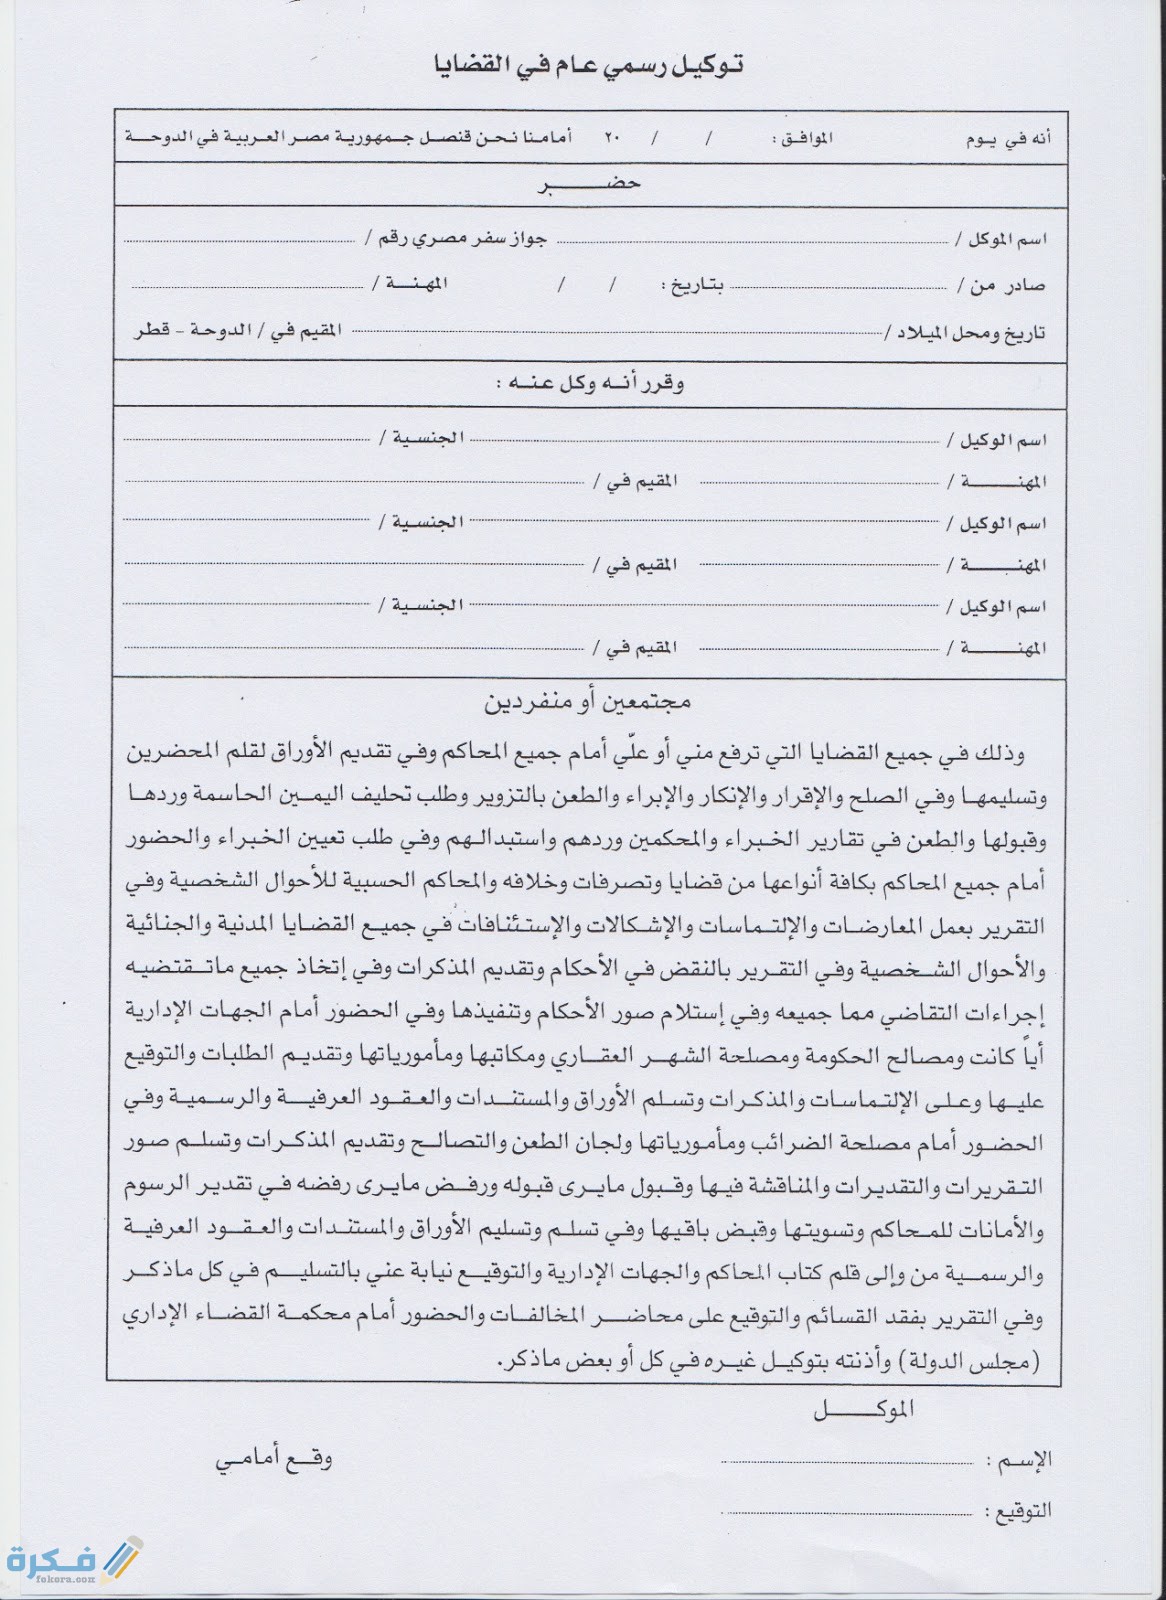 توكيل رسمي عام في القضايا
أنه في يوم الموافق : / / ٢٠ أمامنا نحن قنصل جمهورية مصر العربية في الدوحة
حضر
اسم الموكل / جواز سفر مصري رقم /
صادر من / بتاريخ : / / المهنة /
تاريخ ومحل الميلاد / المقيم في / الدوحة - قطر
وقرر أنه وكل عنه :
اسم الوكيل / الجنسية /
المهنة / المقيم في /
اسم الوكيل / الجنسية /
المهنة / المقيم في /
اسم الوكيل / الجنسية /
المهنة / المقيم في /
مجتمعين أو منفردين
وذلك في جميع القضايا التي ترفع مني أو علّي أمام جميع المحاكم وفي تقديم الأوراق لقلم المحضرين
وتسليمها وفي الصلح والإقرار والإنكار والإبراء والطعن بالتزوير وطلب تحليف اليمين الحاسمة وردها
وقبولها والطعن في تقارير الخبراء والمحكمين وردهم واستبدالهم وفي طلب تعيين الخبراء والحضور
أمام جميع المحاكم بكافة أنواعها من قضايا وتصرفات وخلافه والمحاكم الحسبية للأحوال الشخصية وفي
التقرير بعمل المعارضات والإلتماسات والإشكالات والإستئنافات في جميع القضايا المدنية والجنائية
والأحوال الشخصية وفي التقرير بالنقض في الأحكام وتقديم المذكرات وفي إتخاذ جميع ماتقتضيه
إجراءات التقاضي مما جميعه وفي إستلام صور الأحكام وتنفيذها وفي الحضور أمام الجهات الإدارية
أياً كانت ومصالح الحكومة ومصلحة الشهر العقاري ومكاتبها ومأمورياتها وتقديم الطلبات والتوقيع
عليها وعلى الإلتماسات والمذكرات وتسلم الأوراق والمستندات والعقود العرفية والرسمية وفي
الحضور أمام مصلحة الضرائب ومأمورياتها ولجان الطعن والتصالح وتقديم المذكرات وتسلم صور
التقريرات والتقديرات والمناقشة فيها وقبول مايرى قبوله ورفض مايرى رفضه في تقدير الرسوم
والأمانات للمحاكم وتسويتها وقبض باقيها وفي تسلم وتسليم الأوراق والمستندات والعقود العرفية
والرسمية من وإلى قلم كتاب المحاكم والجهات الإدارية والتوقيع نيابة عني بالتسليم في كل ماذكر
وفي التقرير بفقد القسائم والتوقيع على محاضر المخالفات والحضور أمام محكمة القضاء الإداري
(مجلس الدولة) وأذنته بتوكيل غيره في كل أو بعض ماذكر.
الموكل
الإسم : وقع أمامي
التوقيع :
فكرة
fokera.com